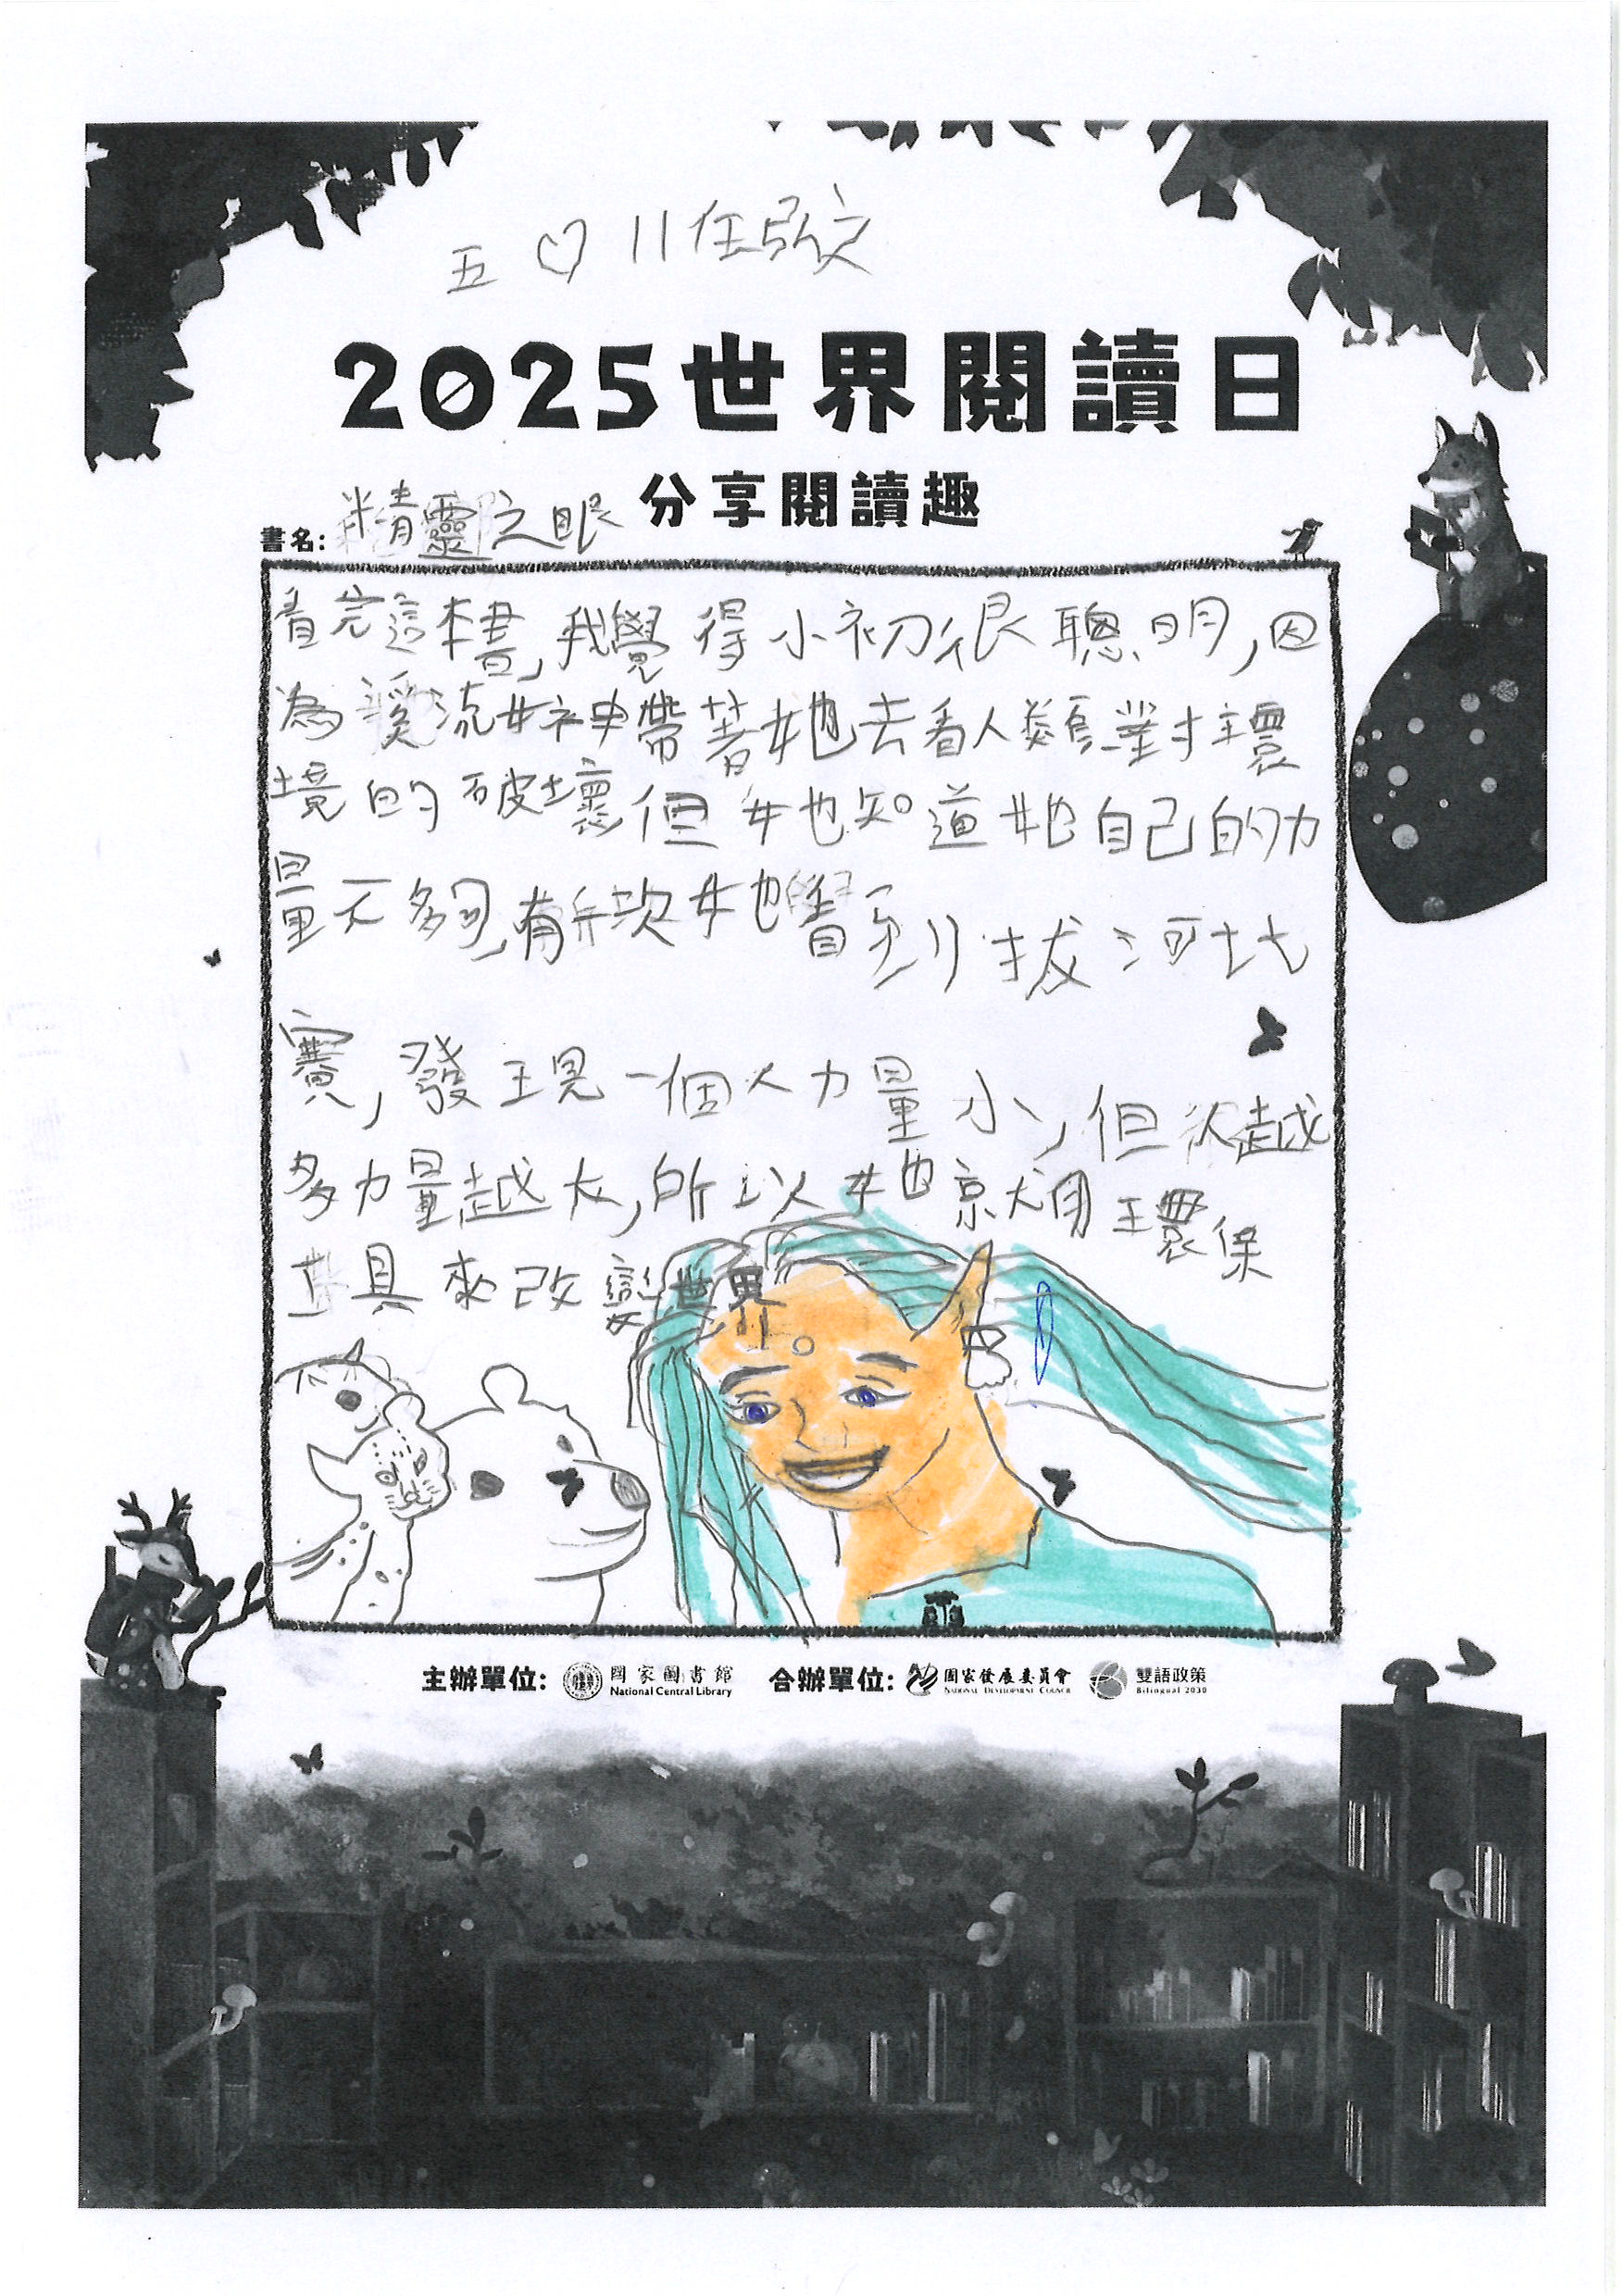 五♡11任弘文
2025世界閱讀日
分享閱讀趣
書名：精靈之眼
看完這本書,我覺得小初很聰明,因
為溪流女神帶著她去看人類對環
境的破壞但她知道她自己的力
量不夠,有一次她看到拔河比
賽,發現一個人力量小,但次越
多力量越大,所以她就用環保
工具來改變世界。
主辦單位: 國家圖書館 National Central Library 合辦單位: 國家發展委員會 NATIONAL DEVELOPMENT COUNCIL 雙語政策 Bilingual 2030